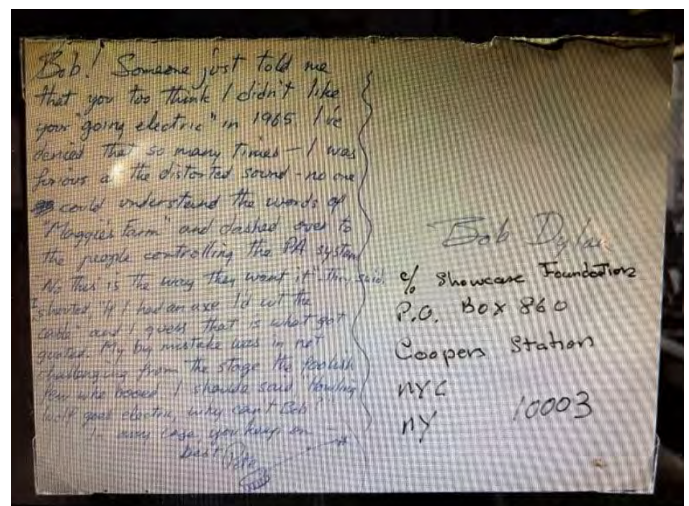 Bob! Someone just told me
that you too think I didn't like
your "going electric" in 1965. I've
denied that so many times — I was
furious at the distorted sound - no one
could understand the words of
"Maggie's Farm" and dashed over to
the people controlling the PA system
"No this is the way they want it" they said.
I shouted "If I had an axe I'd cut the
cable" and I guess that is what got
quoted. My big mistake was in not
challenging from the stage the foolish
few who booed. I shoulda said "Howling
Wolf goes electric, why can't Bob"
In any case, you keep on —
best Pete
Bob Dylan
c/o Showcase Foundation
P.O. Box 860
Coopers Station
NYC
NY 10003